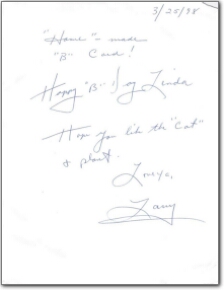 3/25/98
"Home" - made
"B" Card!
Happy "B" Day Linda
Hope you like the "Cat"
& plant.
Love ya,
Larry